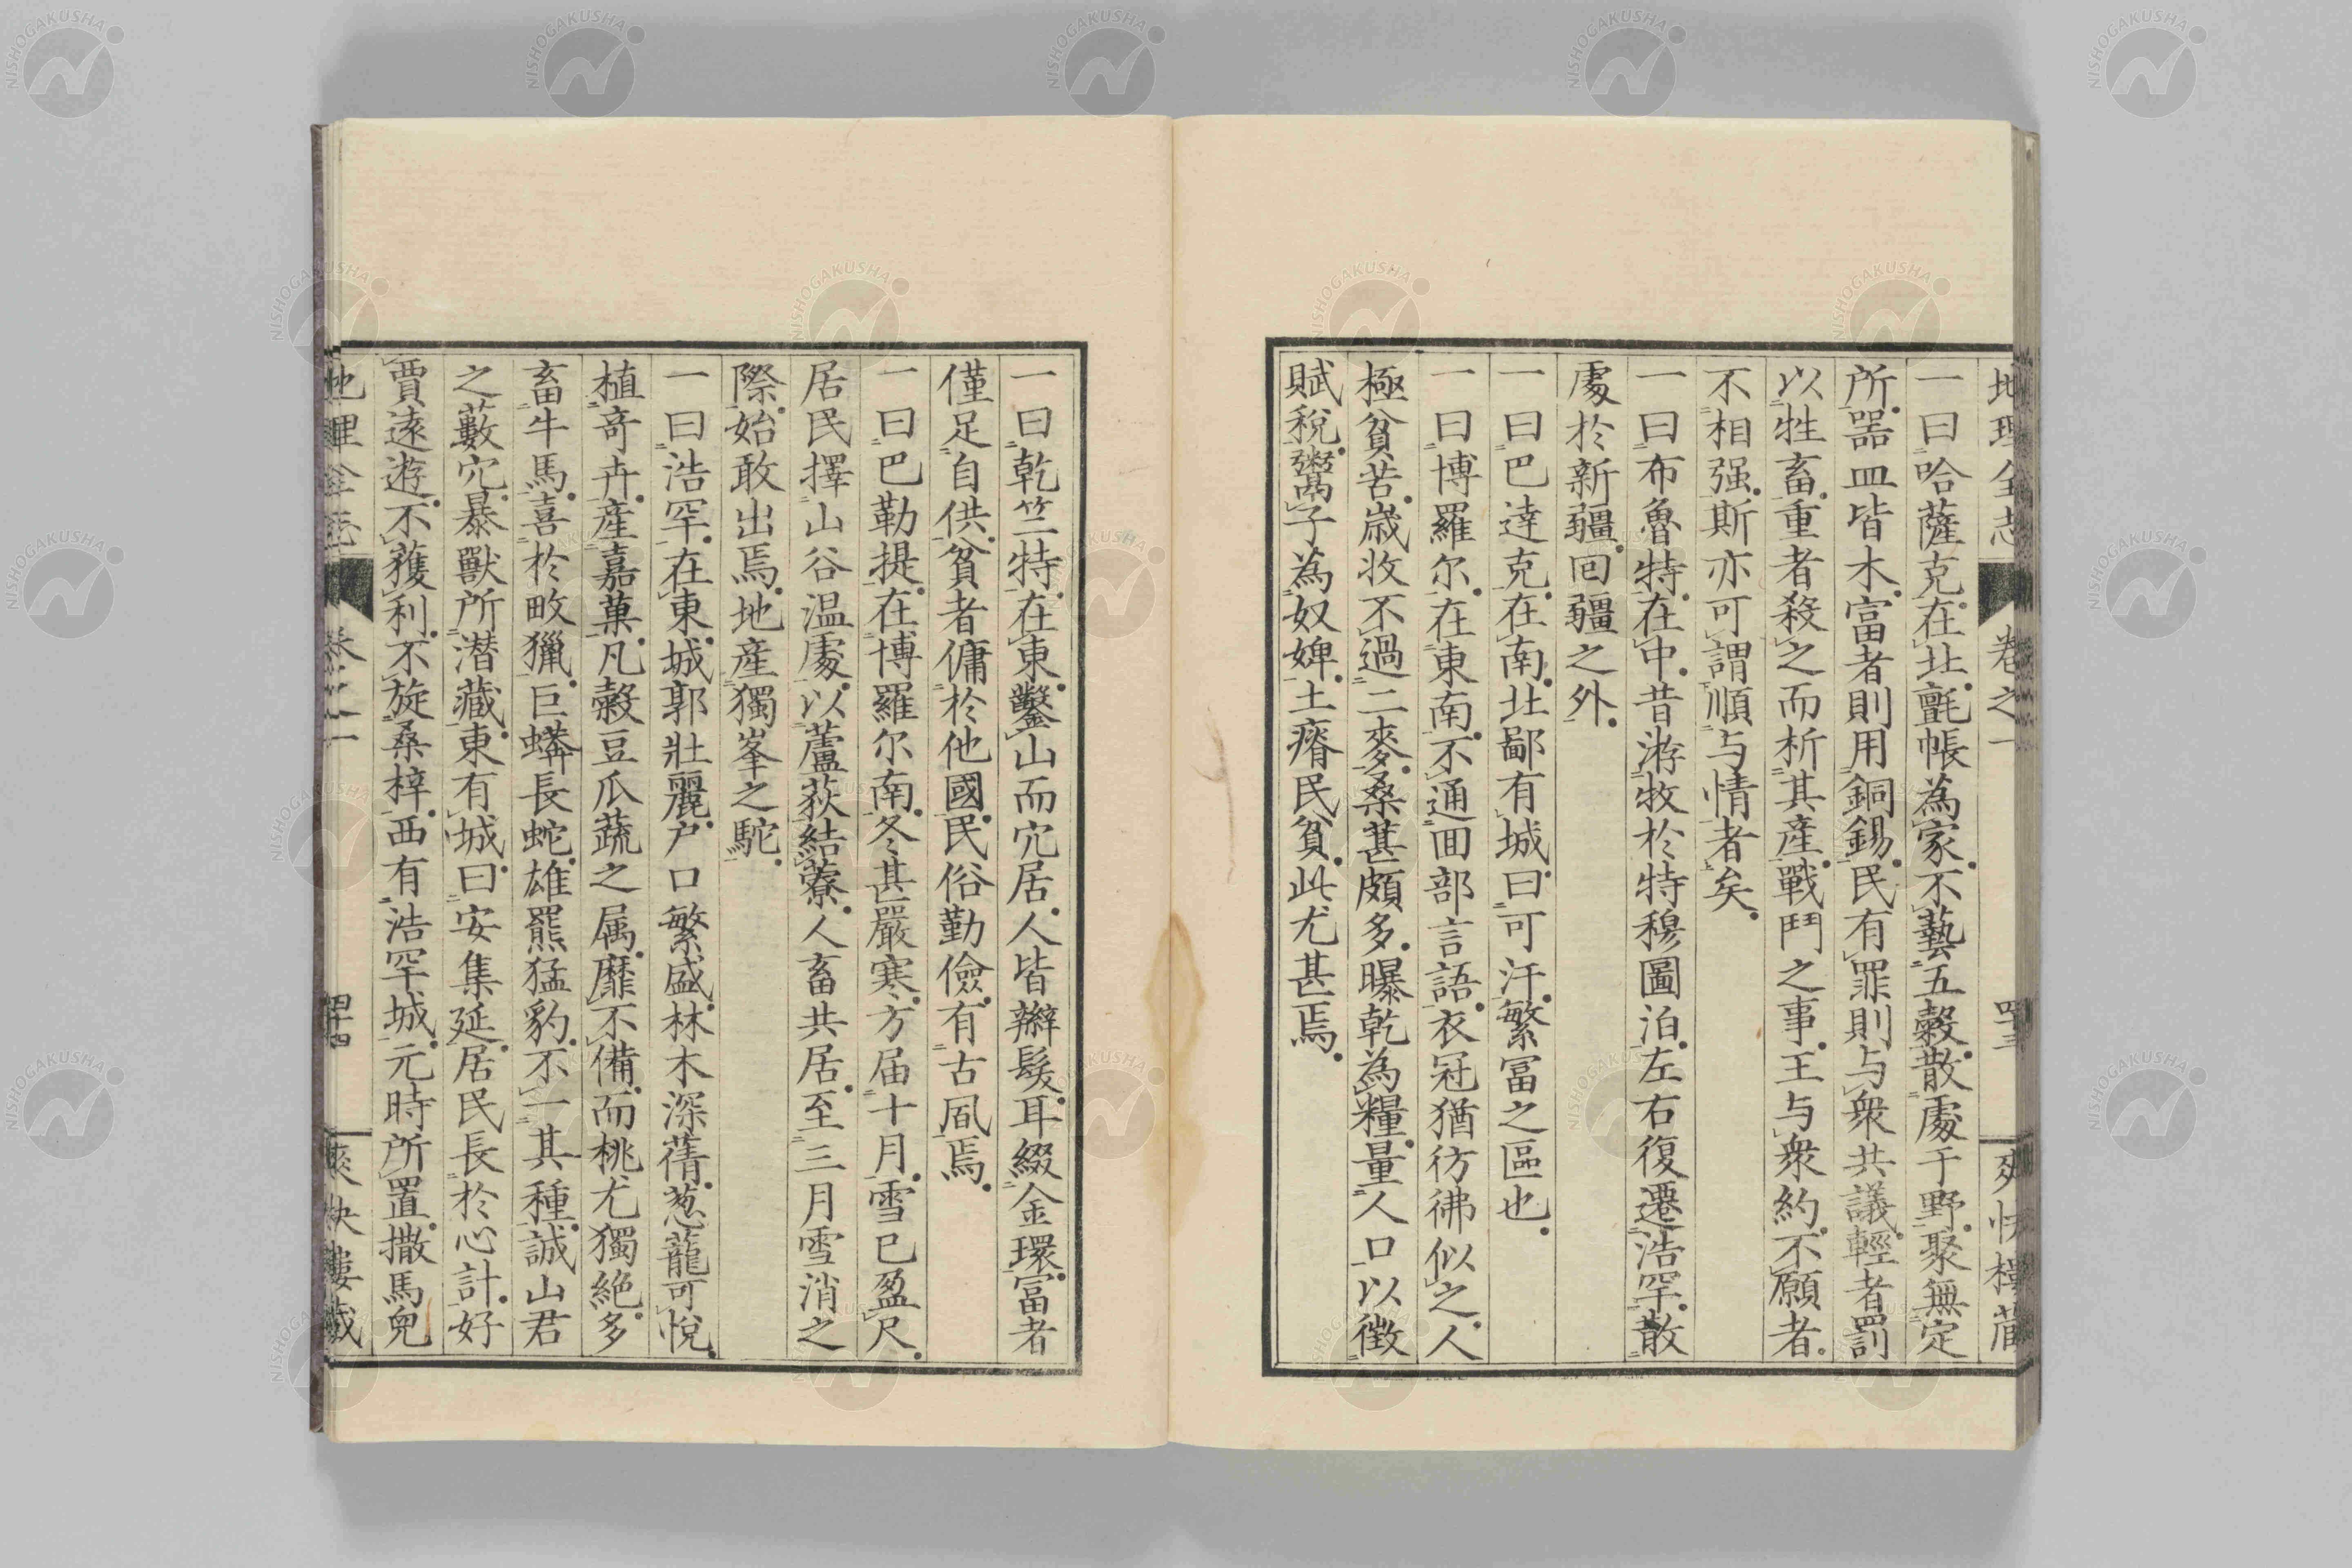 地理全志 卷之一 四十三 爽快樓藏
一曰哈薩克在北氈帳為家不藝五穀散處于野聚無定
所噐皿皆木富者則用銅錫民有罪則与衆共議輕者罰
以牲畜重者殺之而析其產戰鬥之事王与衆約不願者
不相强斯亦可謂順与情者矣
一曰布魯特在中昔游牧於特穆圖泊左右復遷浩罕散
處於新疆回疆之外
一曰巴達克在南北鄙有城曰可汗繁冨之區也
一曰博羅尔在東南不通回部言語衣冠猶彷彿似之人
極貧苦歲收不過二麥桑葚頗多曝乾為糧量人口以徴
賦稅鬻子為奴婢土瘠民貧此尤甚焉
一曰乾竺特在東鑿山而穴居人皆辮髮耳綴金環冨者
僅足自供貧者傭於他國民俗勤儉有古風焉
一曰巴勒提在博羅尔南冬甚嚴寒方届十月雪已盈尺
居民擇山谷温處以蘆荻結藔人畜共居至三月雪消之
際始敢出焉地產獨峯之駝
一曰浩罕在東城郭壯麗户口繁盛林木深蒨葱蘢可悅
植竒卉產嘉菓凡穀豆瓜蔬之属靡不備而桃尤獨絶多
畜牛馬喜於畋獵巨蟒長蛇雄羆猛豹不一其種誠山君
之藪穴暴獸所潛藏東有城曰安集延居民長於心計好
賈逺遊不獲利不旋桑梓西有浩罕城元時所置撒馬兒
地理全志 卷之一 四十四 爽快樓藏
NISHOGAKUSHA